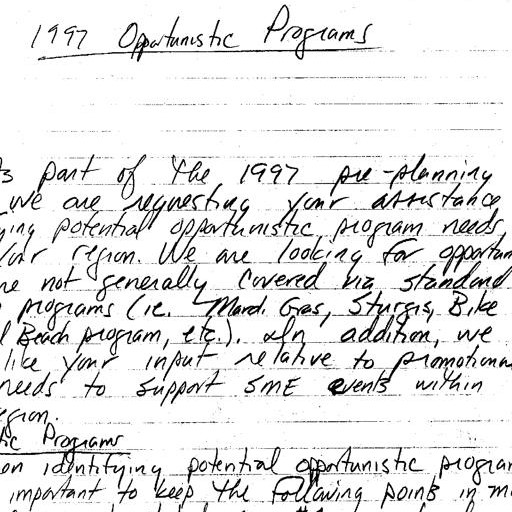 1997 Opportunistic Programs
As part of the 1997 pre-planning
we are requesting your assistance
ying potential opportunistic program needs
your region. We are looking for opportun
re not generally covered via standard
programs (ie. Mardi Gras, Sturgis, Bike
l Beach program, etc.). In addition, we
like your input relative to promotiona
needs to support SME events within
egion.
tic Programs
on identifying potential opportunistic program
important to keep the following points in m